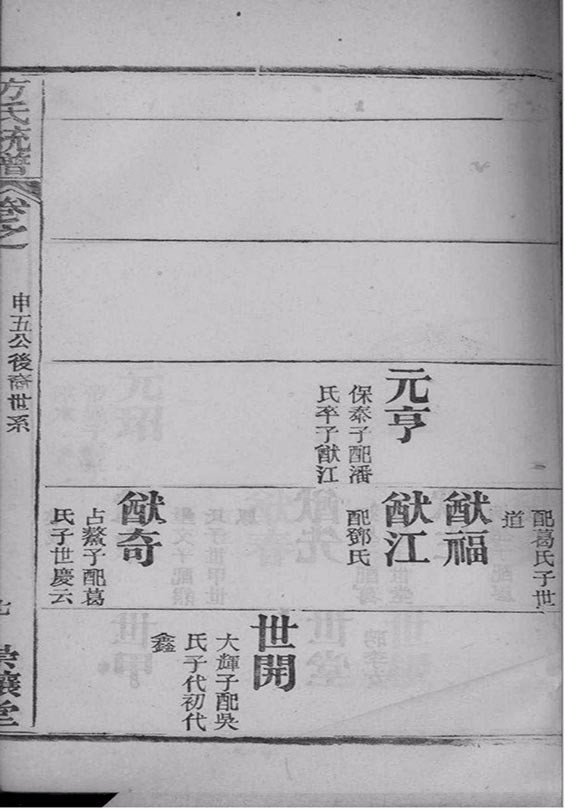 元亨
保泰子配潘
氏卒子猷江
配葛氏子世
道
猷福
猷江
配鄧氏
猷奇
占鰲子配葛
氏子世慶云
世開
大輝子配吳
氏子代初代
鑫
方氏統譜
卷之
申五公後裔世系
七